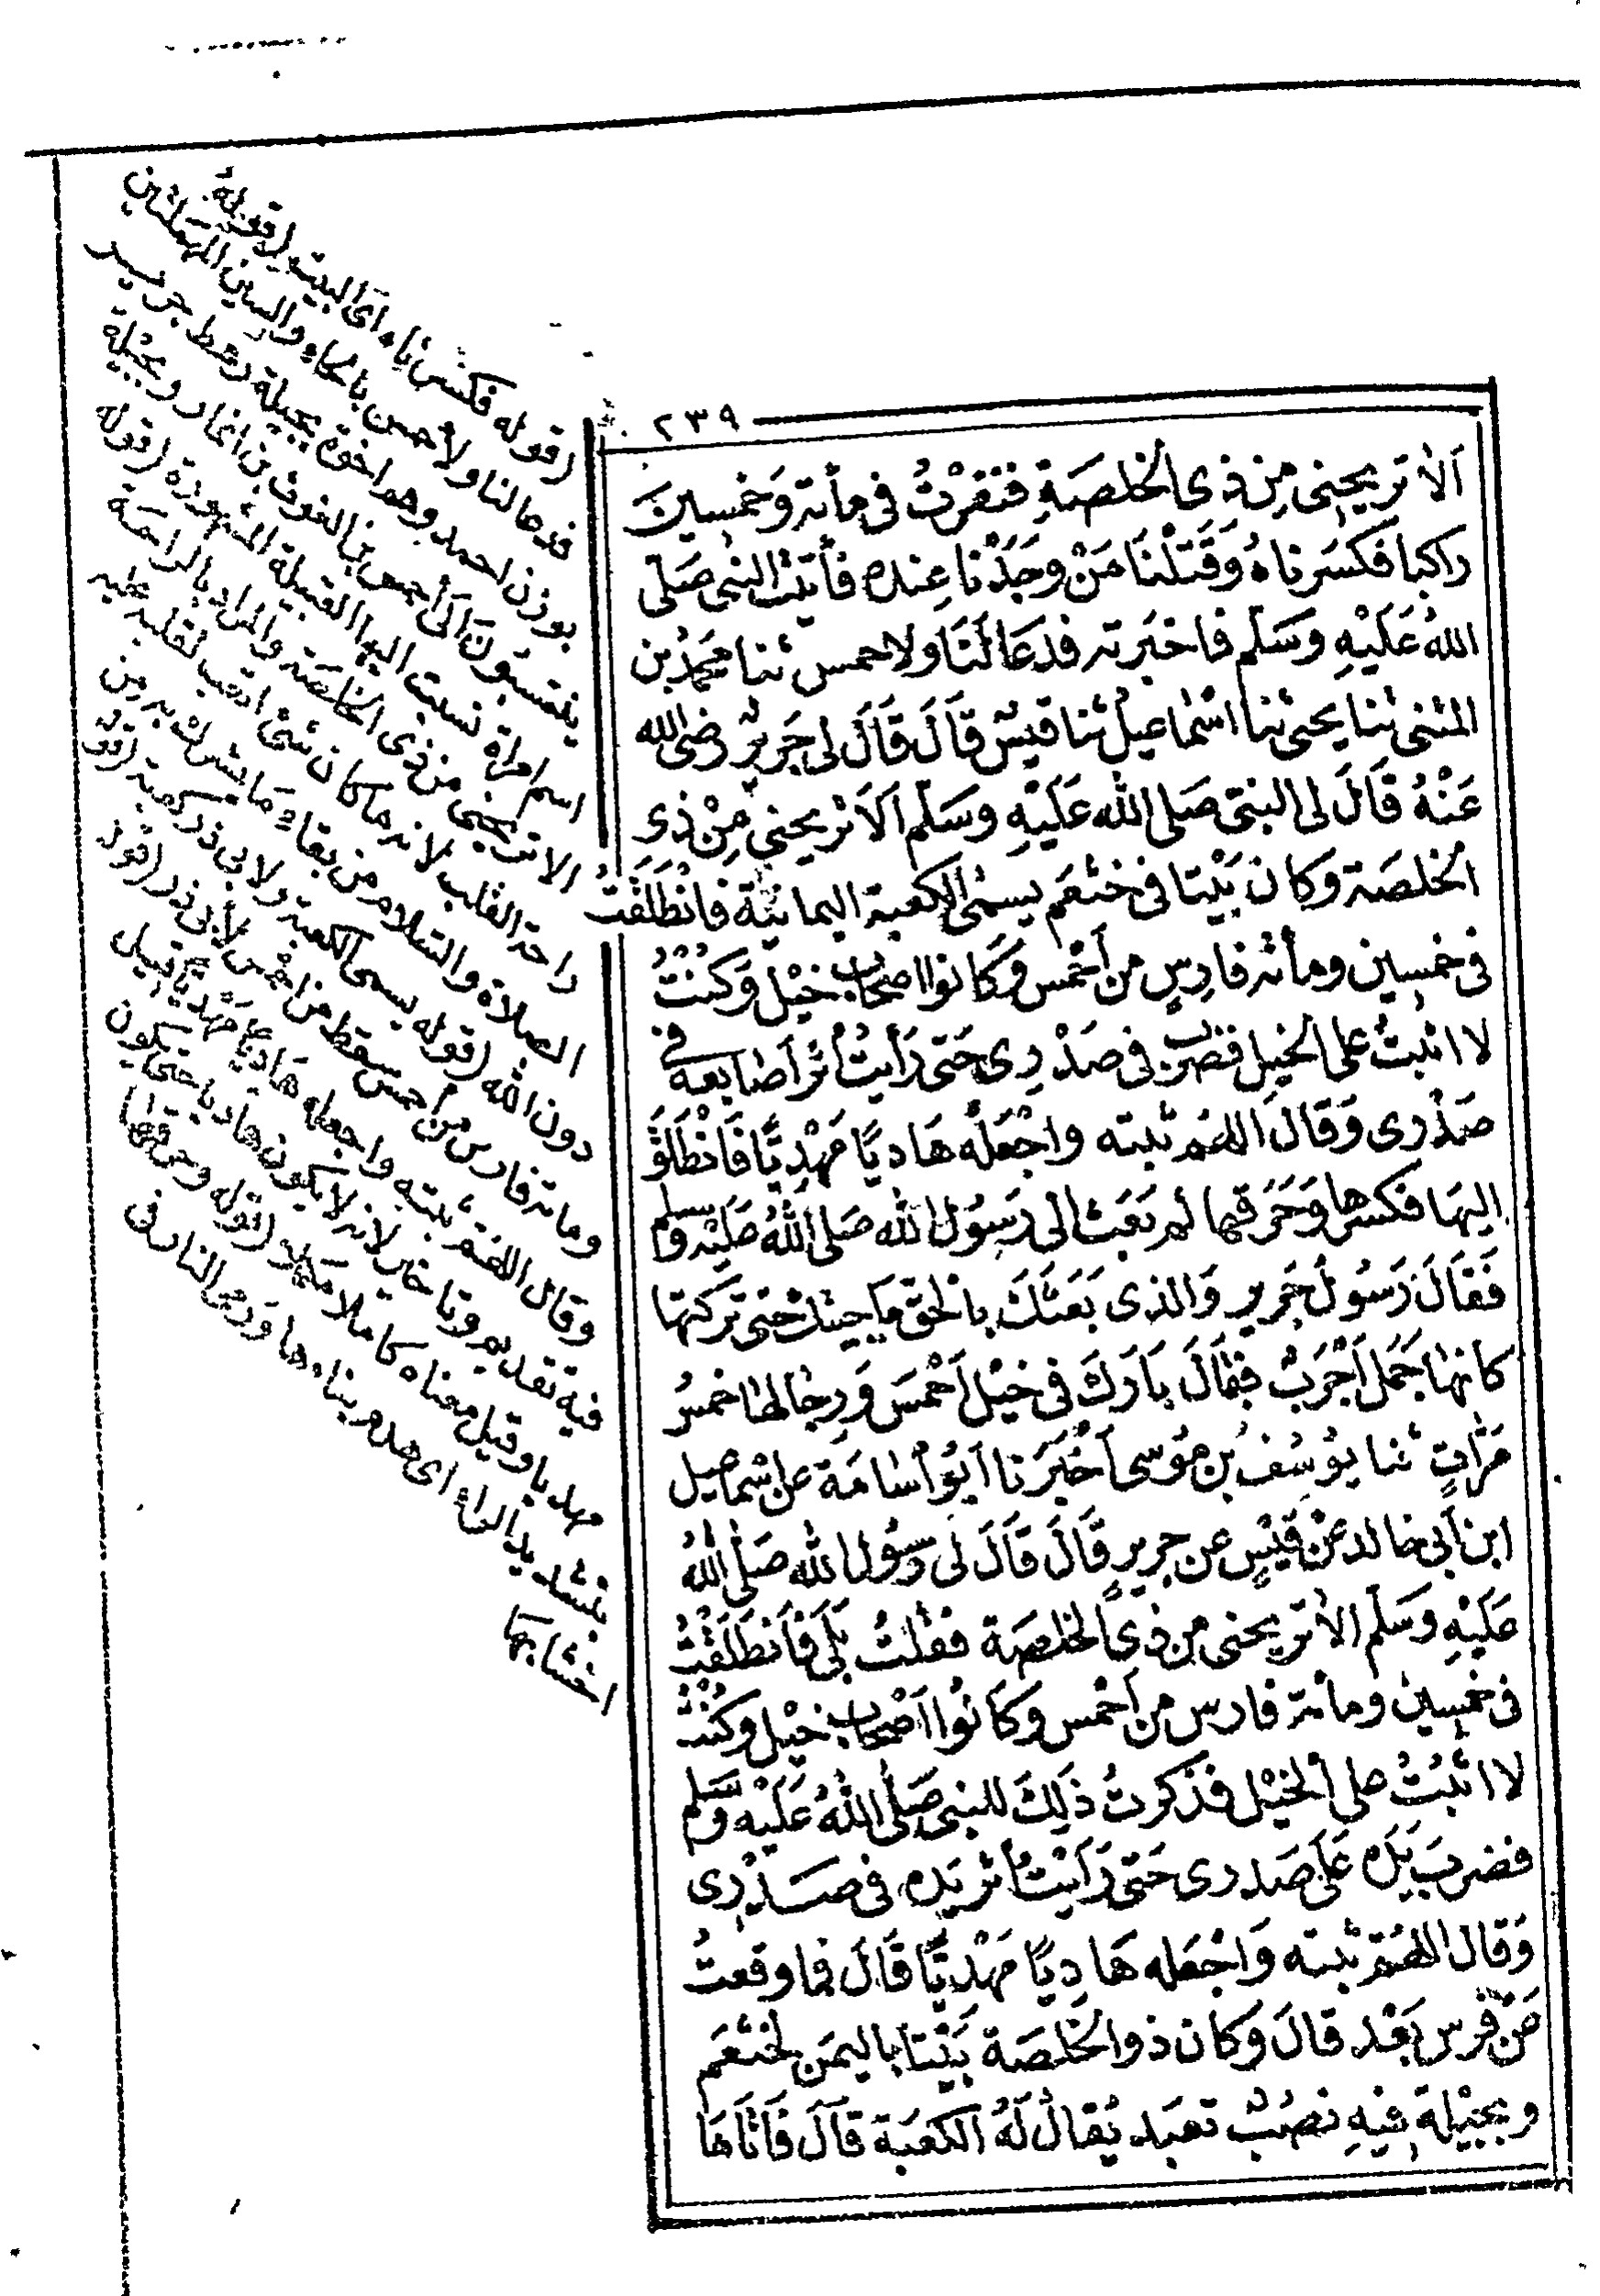 ٢٣٩
اَلاَ تريحنى مِن ذى الخلصَةِ فنفرْتُ فى مأئة وَخمسِينَ
راكبا فكسَرناهُ وَقَتلْنَا مَنْ وجَدْنا عِنده فأتيْتُ النبى صَلى
اللهُ عَليْهِ وَسَلم فاخبَرته فدَعَا لنَا ولاحمس ثنا محمدُ بن
المثنى ثنا يحيى ثنا اسْماعيلُ ثنا قيسٌ قَالَ قَالَ لى جَريرٌ رضى الله
عَنْهُ قَالَ لى النبىّ صَلى الله عَليْهِ وسَلم اَلاَ تريحنى مِنْ ذِى
الخلصَة وَكان بَيْتا فى خثعَم يسمىَ الكعبة اليمانيَّة فانْطَلَقتُ
فى خمسِين ومأئة فارِسٍ من اَحْمس وَكانوا اصحَاب خيْل وَكنْتُ
لا اثبتُ على الخيل فضرَب فى صَدْرِى حَتى رَأيتُ أثرَ أصَابعه فى
صَدْرى وَقال اللهُم ثبته واجْعَلْه هَاديًا مَهْدِيًّا فَانْطَلَقَ
اليهَا فكسَرها وَحَرقها ثم بَعَث الى رَسوُل الله صَلى اللهُ عَليْه وسلم
فَقَالَ رَسُولُ جَرير وَالذى بَعَثكَ بالحَق مَا جِئتك حَتى تركتها
كانهَا جَمل اَجْرَبُ فقالَ بَارَكَ فى خيْل اَحْمسَ وَرِجالهَا خمسُ
مَرّاتٍ ثنا يوُسُف بن موُسى اَخْبَرَنا ابوُ أسَامَة عن اسْماعيل
ابن أبى خالد عَنْ قيْسٍ عن جرير قَالَ قَالَ لى رسوُل الله صَلى اللهُ
عَليْهِ وَسَلم الاَ تريحنى من ذِى الخلصَة فقلتُ بَلى فَانطَلقْتُ
فى خمسِين ومأئة فارس من اَحْمس وَكانُوا اَصْحَاب خيْل وكنتُ
لا اثبُتُ على الخيْل فذكرتُ ذَلِكَ للنبى صَلى اللهُ عَليْه وَسلم
فضربَ يَدَه عَلى صَدرى حَتى رَأيْتُ أثر يَده فى صَدْرِى
وَقال اللهُم ثبته وَاجْعَله هَادِيًا مَهْدِيًّا قَالَ فما وقعتُ
عَنْ فَرس بَعْد قالَ وَكان ذو الخَلصَة بَيْتا باليمَن لخثعَم
وبجيْلة فيهِ نصُبٌ تعبَد يُقالُ لَهُ الكعْبَة قَالَ فَأتَاهَا
(قوله فكسرناه) أى البيت (قوله
فدعا لنا ولأحمس) بالحاء والسين المهملتين
بوزن احمد وهم اخوة بجيلة رهط جرير
ينتسبون الى أحمس بن الغوث بن انمار وبجيلة
اسم امرأة نسبت اليها القبيلة المشهورة (قوله
الا تريحنى من ذى الخلصة) والمراد بالراحة
راحة القلب لانه ما كان شئ اتعب لقلبه عليه
الصلاة والسلام من بقاء ما يشرك به من
دون الله (قوله يسمى الكعبة) ولابى ذر كعبة (قوله
ومائة فارس من أحمس) سقط من احمس لأبى ذر (قوله
وقال اللهم ثبته واجعله هاديا مهديا) قيل
فيه تقديم وتاخير لانه لا يكون هاديا حتى يكون
مهديا وقيل معناه كاملا مكملا (قوله وحرقها)
بتشديد الراء اى هدم بناءها ورمى النار فى
اخشابها